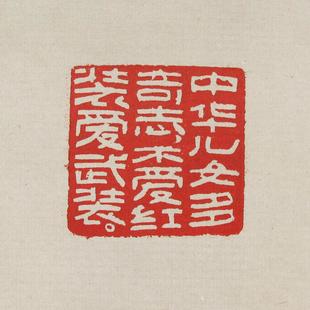 中华儿女多
奇志不爱红
装爱武装。